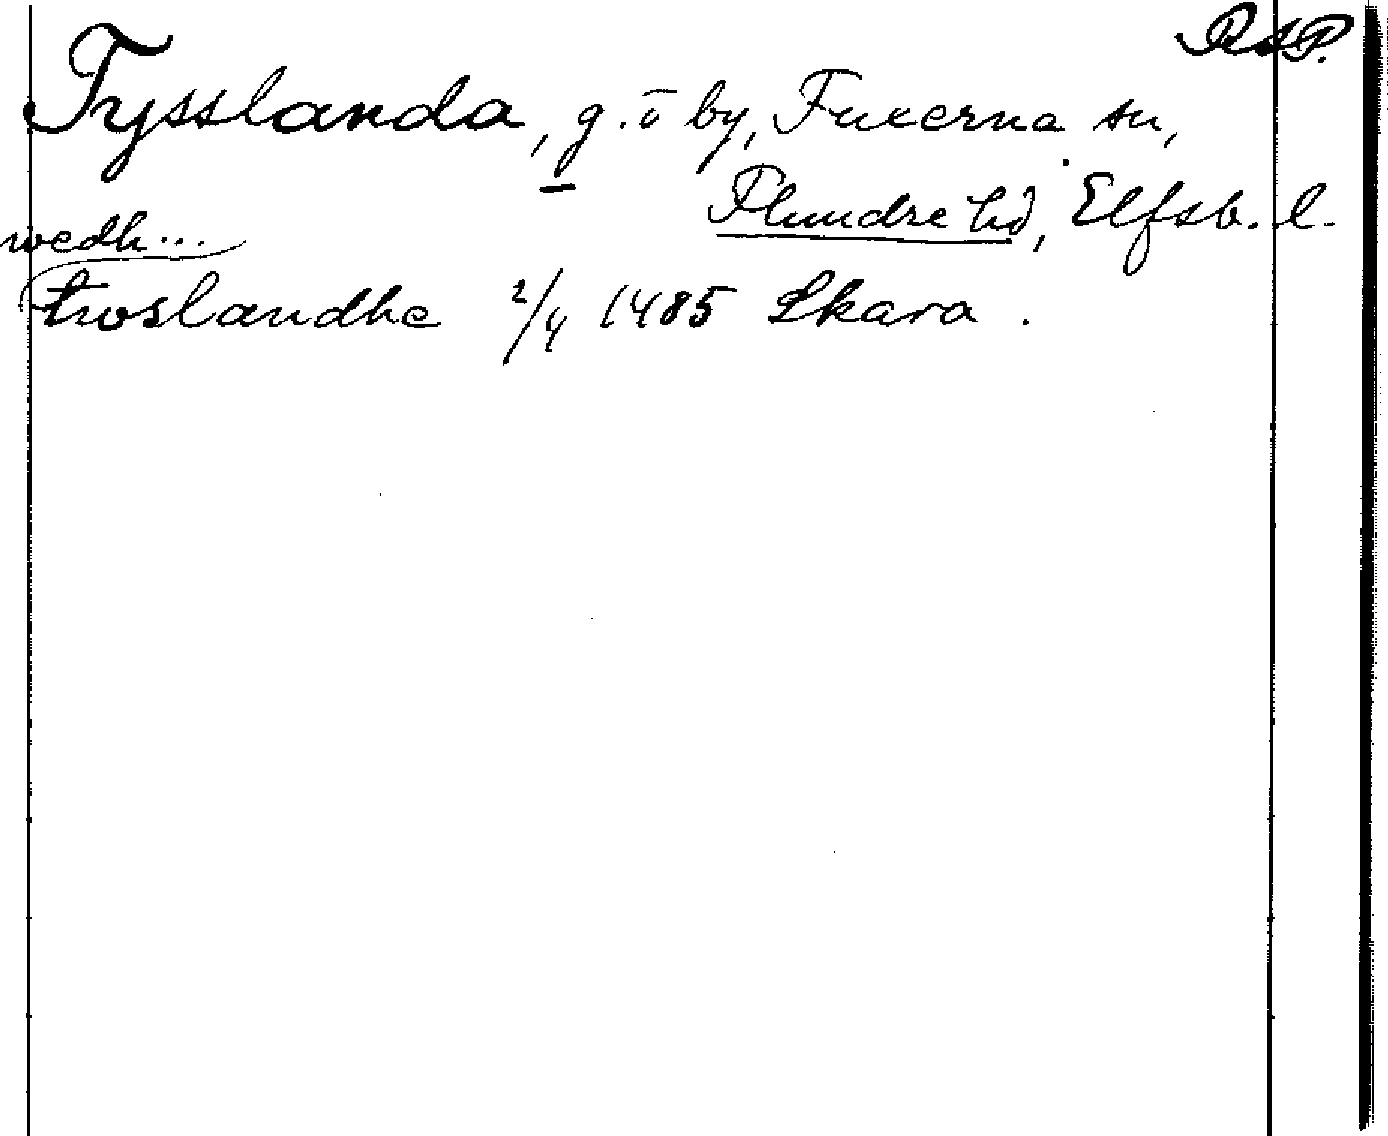 RAP.
Tysslanda, g. o by, Fuxerna sn,
Flundre hd, Elfsb. l.
wedh...
twslandhe 2/4 1485 Skara.